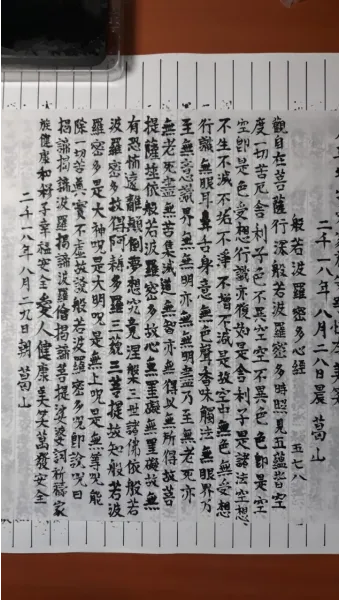 二千一八年八月二八日晨 葛山
般若波羅密多心經 五七八
觀自在菩薩行深般若波羅密多時照見五蘊皆空
度一切苦厄舍利子色不異空空不異色色即是空
空即是色受想行識亦復如是舍利子是諸法空想
不生不滅不垢不淨不增不減是故空中無色無受想
行識無眼耳鼻舌身意無色聲香味觸法無眼界乃
至無意識界無無明亦無無明盡乃至無老死亦
無老死盡無苦集滅道無智亦無得以無所得故菩
提薩埵依般若波羅密多故心無罣礙無罣礙故無
有恐怖遠離顛倒夢想究竟涅槃三世諸佛依般若
波羅密多故得阿耨多羅三藐三菩提故知般若波
羅密多是大神呪是大明呪是無上呪是無等呪能
除一切苦真實不虛故説般若波羅密多呪即說呪曰
揭諦揭諦波羅揭諦波羅僧揭諦菩提娑婆訶祈禱家
族健康和子幸福安全愛人健康美笑萬發安全
二千一八年八月二九日朝 葛山